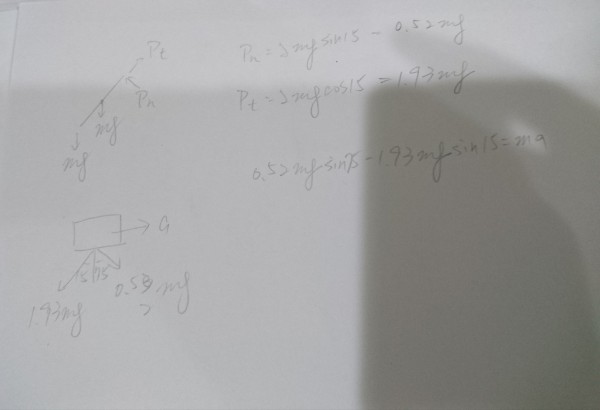 Pt
Pn
mg
mg
Pn = 2mg sin15 - 0.52mg
Pt = 2mg cos15 = 1.93mg
0.52mg sin75 - 1.93mg sin15 = ma
a
15 75
1.93mg
0.52mg